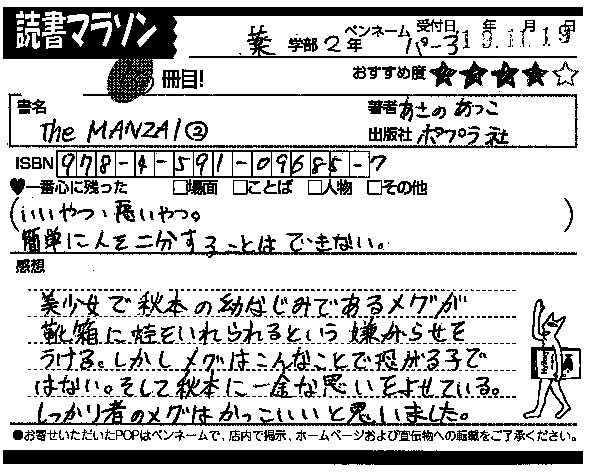 読書マラソン
薬 学部 2年 ペンネーム パー3 受付日 年 月 日 19.11.19
冊目! おすすめ度 ★★★★☆
書名 The MANZAI② 著者 あさのあつこ
出版社 ポプラ社
ISBN 978-4-591-09685-7
♥一番心に残った □場面 □ことば □人物 □その他
(いいやつ、悪いやつ。
簡単に人を二分することはできない。)
感想
美少女で秋本の幼なじみであるメグが
靴箱に蛙をいれられるという嫌がらせを
うける。しかしメグはこんなことで恐がる子で
はない。そして秋本に一途な思いをよせている。
しっかり者のメグはかっこいいと思いました。
●お寄せいただいたPOPはペンネームで、店内で掲示、ホームページおよび宣伝物への転載をご了承ください。